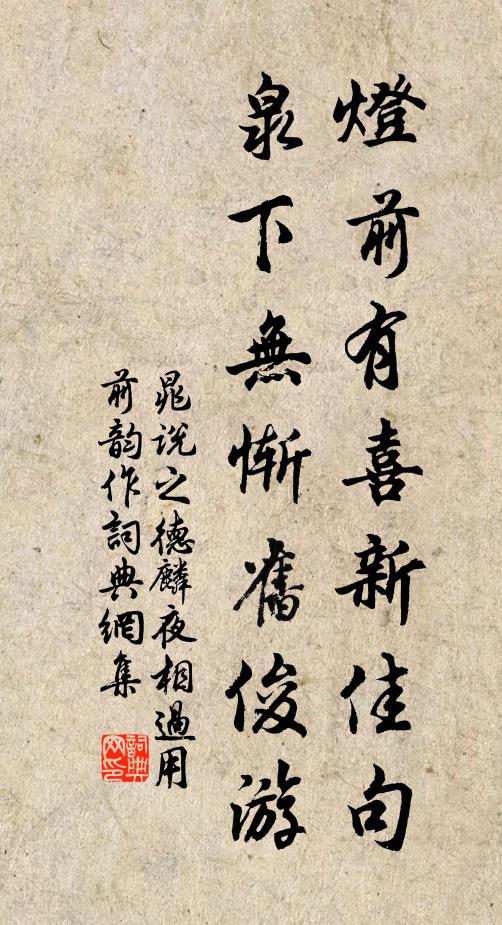 燈前有喜新佳句
泉下無慚舊俊游
晁說之德麟夜相過用
前韵作詞典網集
詞典
网印